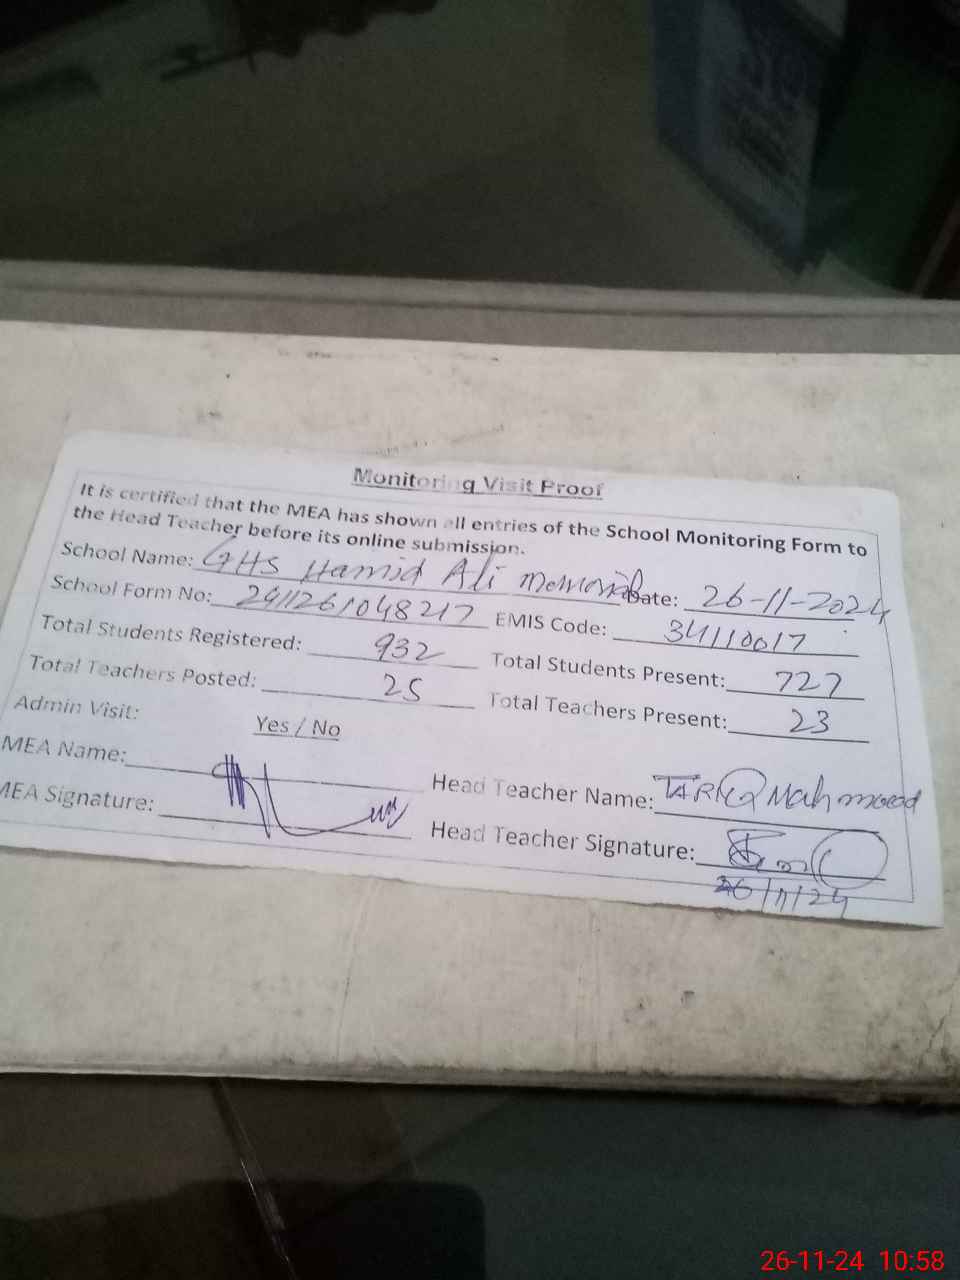 Monitoring Visit Proof
It is certified that the MEA has shown all entries of the School Monitoring Form to
the Head Teacher before its online submission.
School Name: GHS Hamid Ali Memorial Date: 26-11-2024
School Form No: 2411261048217 EMIS Code: 34110017
Total Students Registered: 932 Total Students Present: 727
Total Teachers Posted: 25 Total Teachers Present: 23
Admin Visit: Yes / No
MEA Name: Head Teacher Name: TARIQ Mahmood
MEA Signature: Head Teacher Signature:
26/11/24
26-11-24 10:58